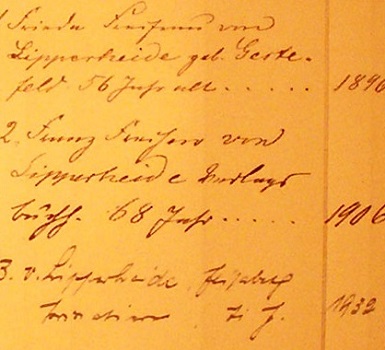 1 Frieda Freifrau von
Lipperheide geb. Geste-
feld 56 Jahr alt ..... 1896
2. Franz Freiherr von
Lipperheide Verlags
buchh. 68 Jahr ..... 1906
3. v. Lipperheide,
1932